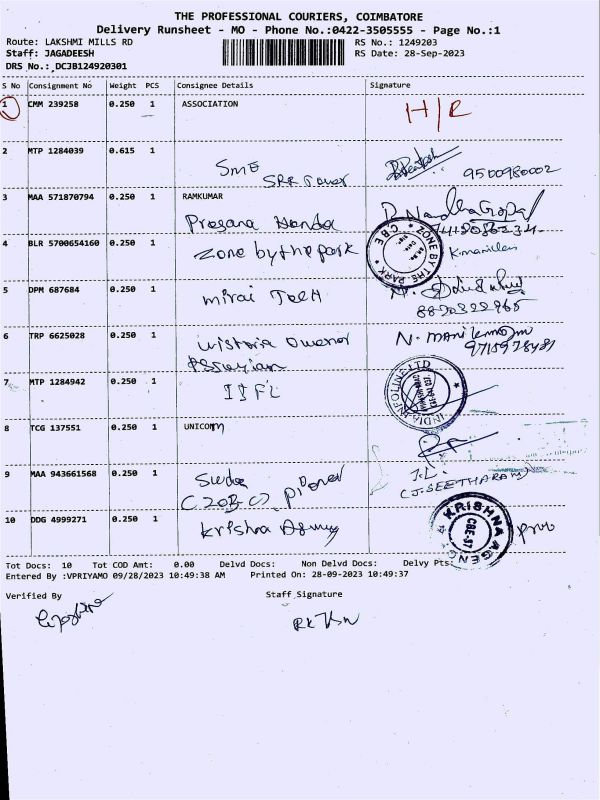 THE PROFESSIONAL COURIERS, COIMBATORE
Delivery Runsheet - MO - Phone No.:0422-3505555 - Page No.:1
Route: LAKSHMI MILLS RD RS No.: 1249203
Staff: JAGADEESH RS Date: 28-Sep-2023
DRS No.: DCJB124920301
S No Consignment No Weight PCS Consignee Details Signature
1 CMM 239258 0.250 1 ASSOCIATION H/R
2 MTP 1284039 0.615 1
SME
9500980002
3 MAA 571870794 0.250 1 RAMKUMAR
Prosana Honda
4 BLR 5700654160 0.250 1 zone by the park ZONE BY THE PARK * CBE * K.manillan
5 DPM 687684 0.250 1 mirai Tech
8870322965
6 TRP 6625028 0.250 1 wistoria Owenor N. MANI
7 MTP 1284942 0.250 1 IIFL INDIA INFOLINE LTD
8 TCG 137551 0.250 1 UNICOM
9 MAA 943661568 0.250 1 J.L.
(J.SEETHARAM)
10 DDG 4999271 0.250 1 Krishna Agency KRISHNA AGENCY CBE-37
Tot Docs: 10 Tot COD Amt: 0.00 Delvd Docs: Non Delvd Docs: Delvy Pts:
Entered By :VPRIYAMO 09/28/2023 10:49:38 AM Printed On: 28-09-2023 10:49:37
Verified By Staff Signature